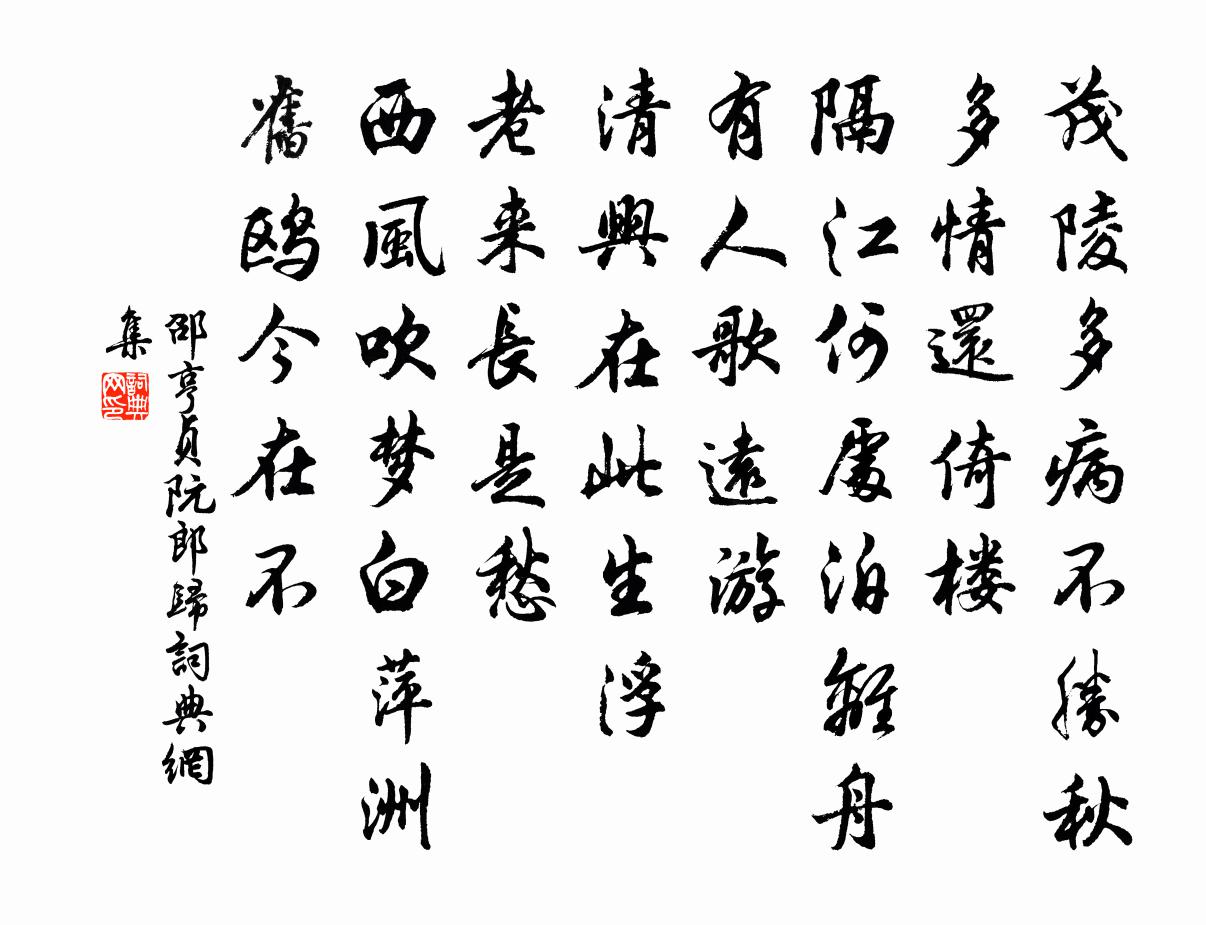 茂陵多多病不勝秋
多情還倚楼
隔江何處泊離舟
有人歌遠游
清興在此生浮
老来長是愁
西風吹梦白萍洲
舊鸥今在不
邵亨貞阮郎歸詞典網
集
詞典网印